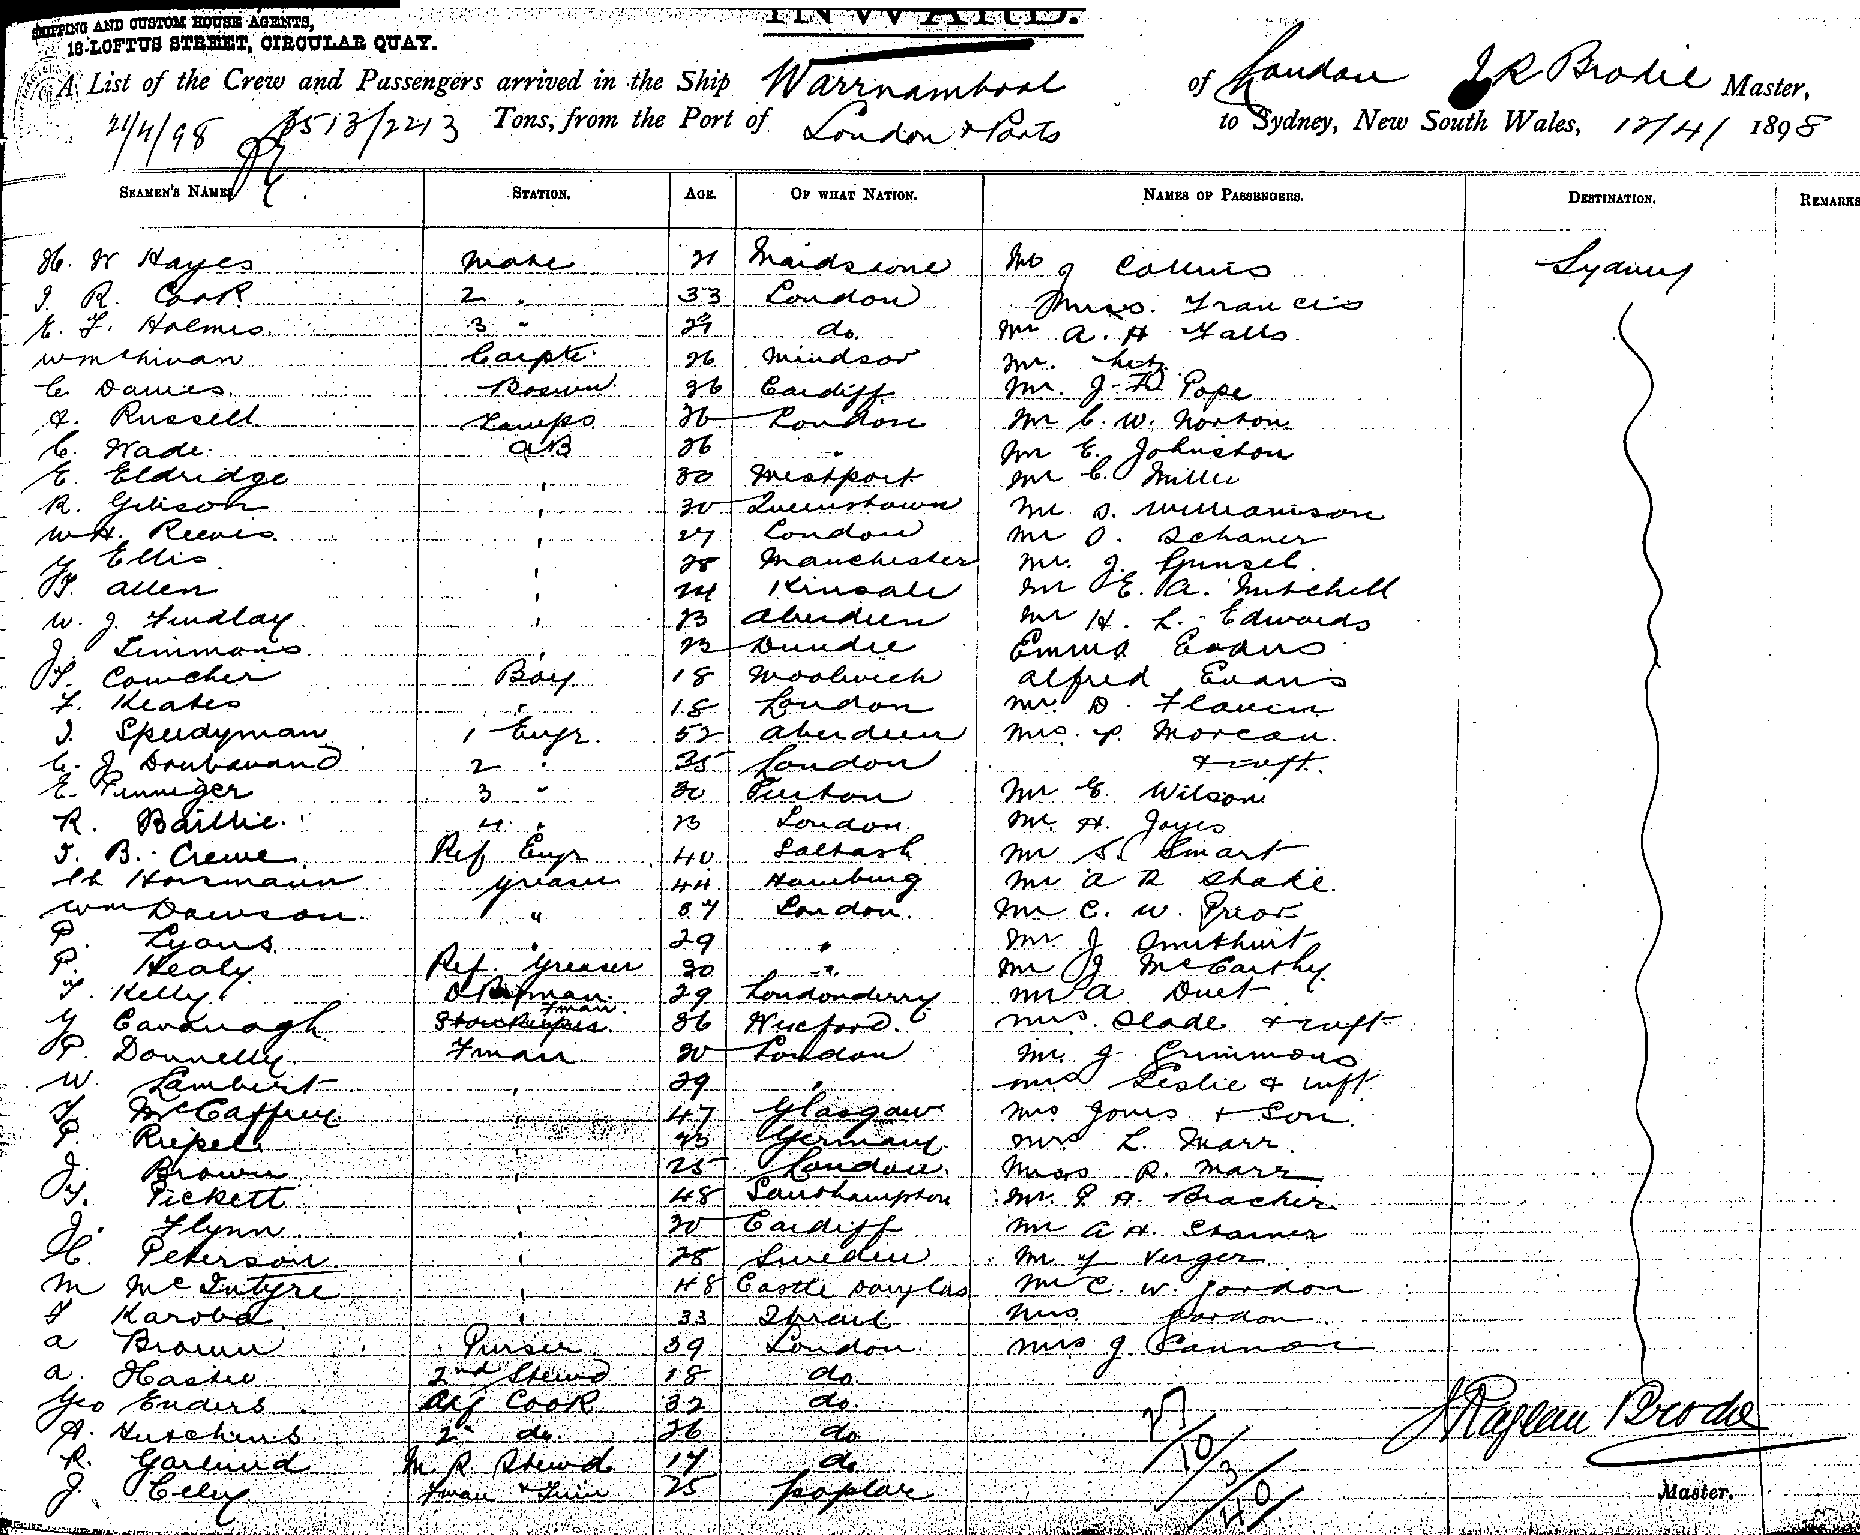 INWARD.
SHIPPING AND CUSTOM HOUSE AGENTS,
18 LOFTUS STREET, CIRCULAR QUAY.
A List of the Crew and Passengers arrived in the Ship Warrnambool of London J R Brodie Master,
21/4/98 3513/2213 Tons, from the Port of London & Ports to Sydney, New South Wales, 12/4/ 1898
SEAMEN'S NAMES. STATION. AGE. OF WHAT NATION. NAMES OF PASSENGERS. DESTINATION. REMARKS
H. W Hayes Mate Maidstone J Collins Sydney
R. Cook 2 " 33 London Miss Francis
E. F. Holmes 3 " do. Mr A. H Falls
Carptr 26 Windsor Mr.
C. Davies Boswn 36 Cardiff Mr. J. Pope
A. Russell Lamps London Mr C. W. Norton
C. Wade AB 26 " Mr E. Johnston
E. Eldridge " 30 Westport Mr C. Miller
R. Gibson " 30 Queenstown Mr S. Williamson
W H. Reeves " 27 London Mr O. Schaner
Ellis " 28 Manchester Mr. J. Gunsel
Allen " 24 Kinsale Mr E. A. Mitchell
W. J. Findlay " 23 Aberdeen Mr H. L. Edwards
J. Simmons " 23 Dundee Emma Evans
Cowcher Boy 18 Woolwich Alfred Evans
F. Keates " 18 London Mr. D. Flavin
Speedyman 1 Engr. 52 Aberdeen P. Morean
C. J. 2 " 35 London & inft.
E. Pinniger 3 " 30 Mr E. Wilson
R. Baillie 4 " 23 London Mr H. Joyes
B. Crewe Ref Engr 40 Saltash Mr S. Smart
Ch Horsmann Greaser 44 Hamburg Mr A R Shake
Wm Dawson " 37 London. Mr C. W. Prior
P. Lyons " 29 " Mr J
P. Healy Ref. Greaser 30 " Mr J McCarthy
T. Kelly 29 Londonderry Mr A Duet
Cavanagh Storekeeper Fman. 36 Wexford. Mrs. Slade & inft
P. Donnelly Fman 30 London Mr. J Grimmons
W. Lambert " 29 " Mrs Leslie & inft
McCaffrey " 47 Glasgow Mrs Jones & Son
P. Riepel " 43 Germany Mrs L. Marr
J. Brown " 25 London. Miss R. Marr
Pickett " 48 Southampton Mr. P A. Bracher
J. Flynn " 30 Cardiff Mr A H. Stainer
H. Peterson " 28 Sweden Mr Verger
M McIntyre " 48 Castle Douglas Mr C. W. Gordon
Karoba " 33 Mrs Gordon
A Brown Purser 39 London Mrs J. Cannon
A. Hastie 2nd Stewd 18 do
Geo Enders Cook 32 do.
A. Hutchins 2nd do. 26 do
R. Garland M. R Stewd 17 do
J. 25 Poplar
27/10/3/40
J Raglan Brodie
Master.